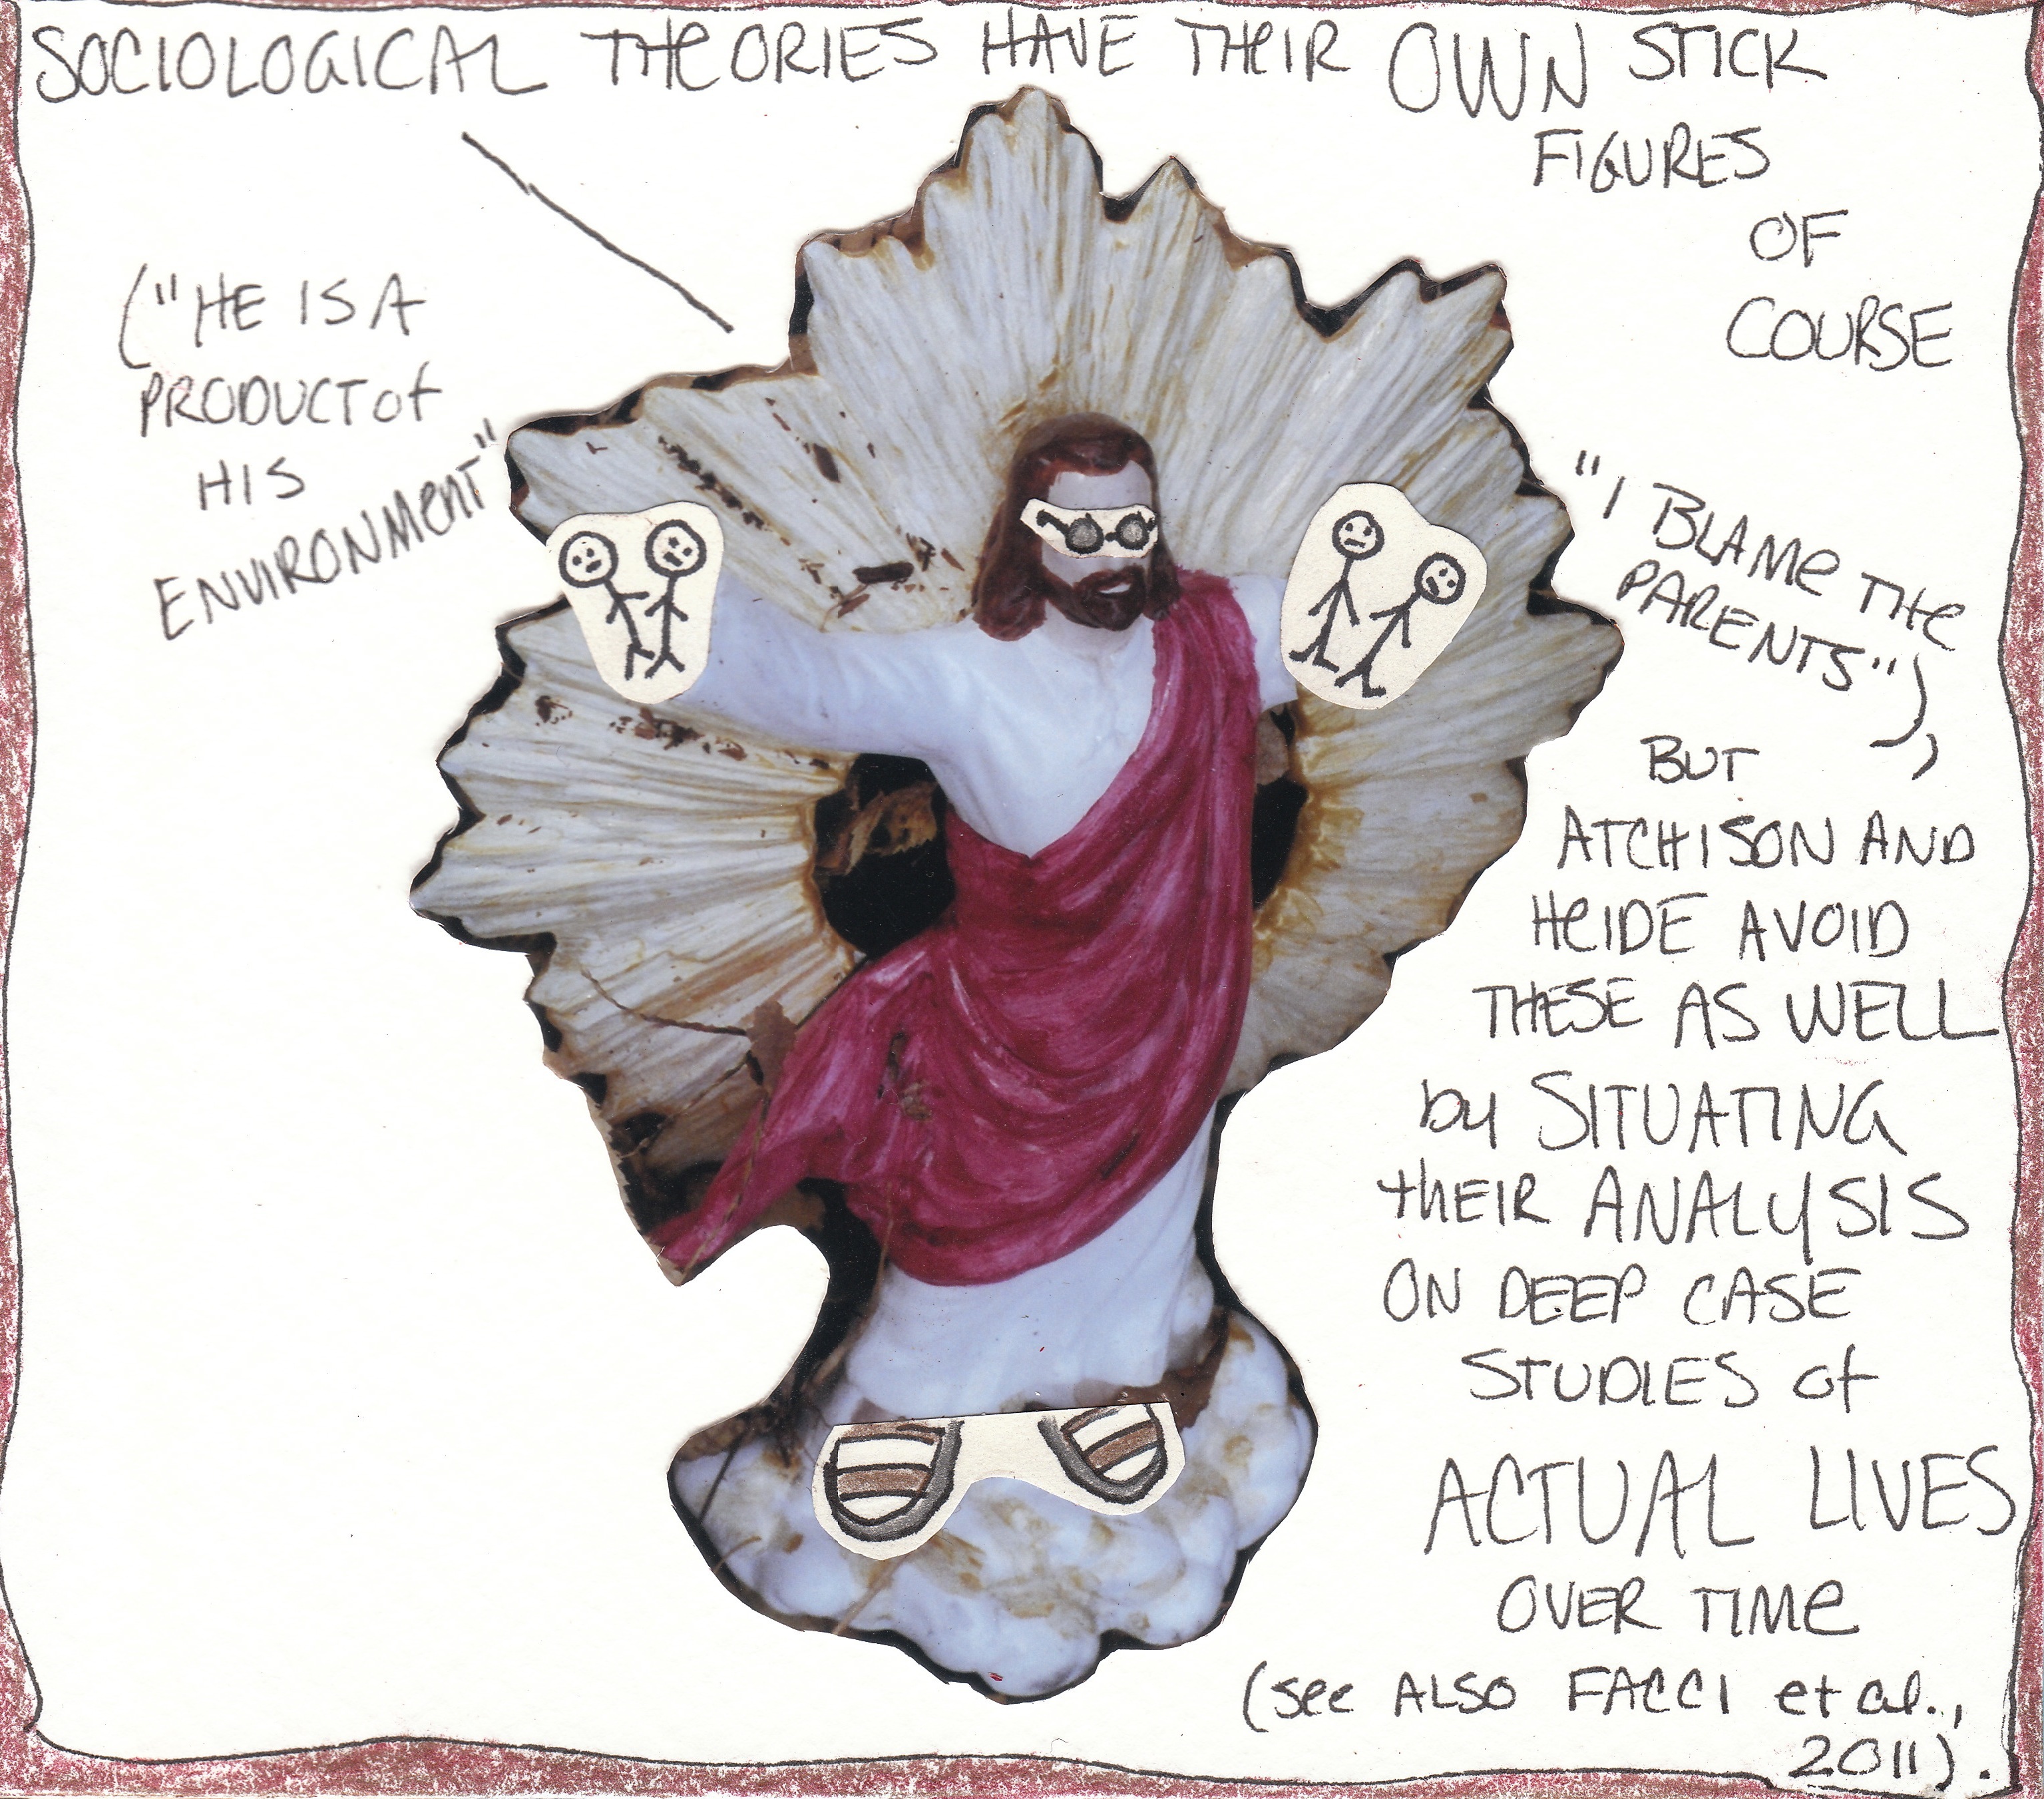 SOCIOLOGICAL THEORIES HAVE THEIR OWN STICK
FIGURES
OF
COURSE
("HE IS A
PRODUCT OF
HIS
ENVIRONMENT"
"I BLAME THE
PARENTS"),
BUT
ATCHISON AND
HEIDE AVOID
THESE AS WELL
by SITUATING
tHEIR ANALYSIS
ON DEEP CASE
STUDIES of
ACTUAL LIVES
OVER TIME
(see ALSO FACCI et al.,
2011).